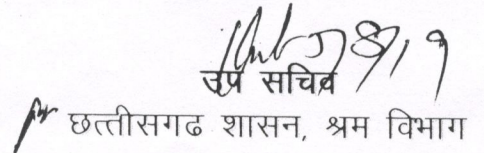 उप सचिव
छत्तीसगढ शासन, श्रम विभाग